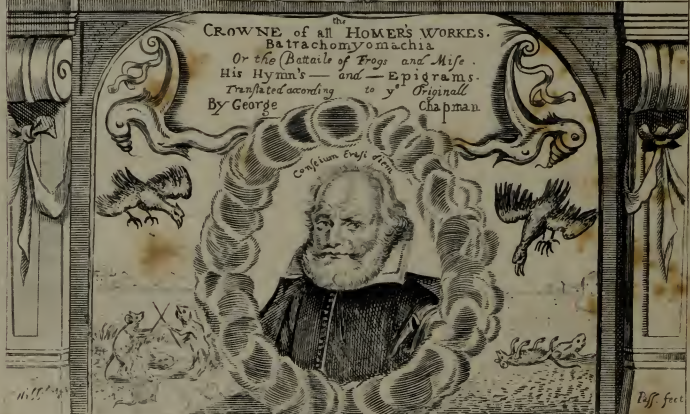 the
CROWNE of all HOMER'S WORKES.
Batrachomyomachia
Or the Battaile of Frogs and Mise.
His Hymn's — and — Epigrams.
Translated according to yᵉ Originall
By George Chapman
Conscium Evasi diem
Pass fecit